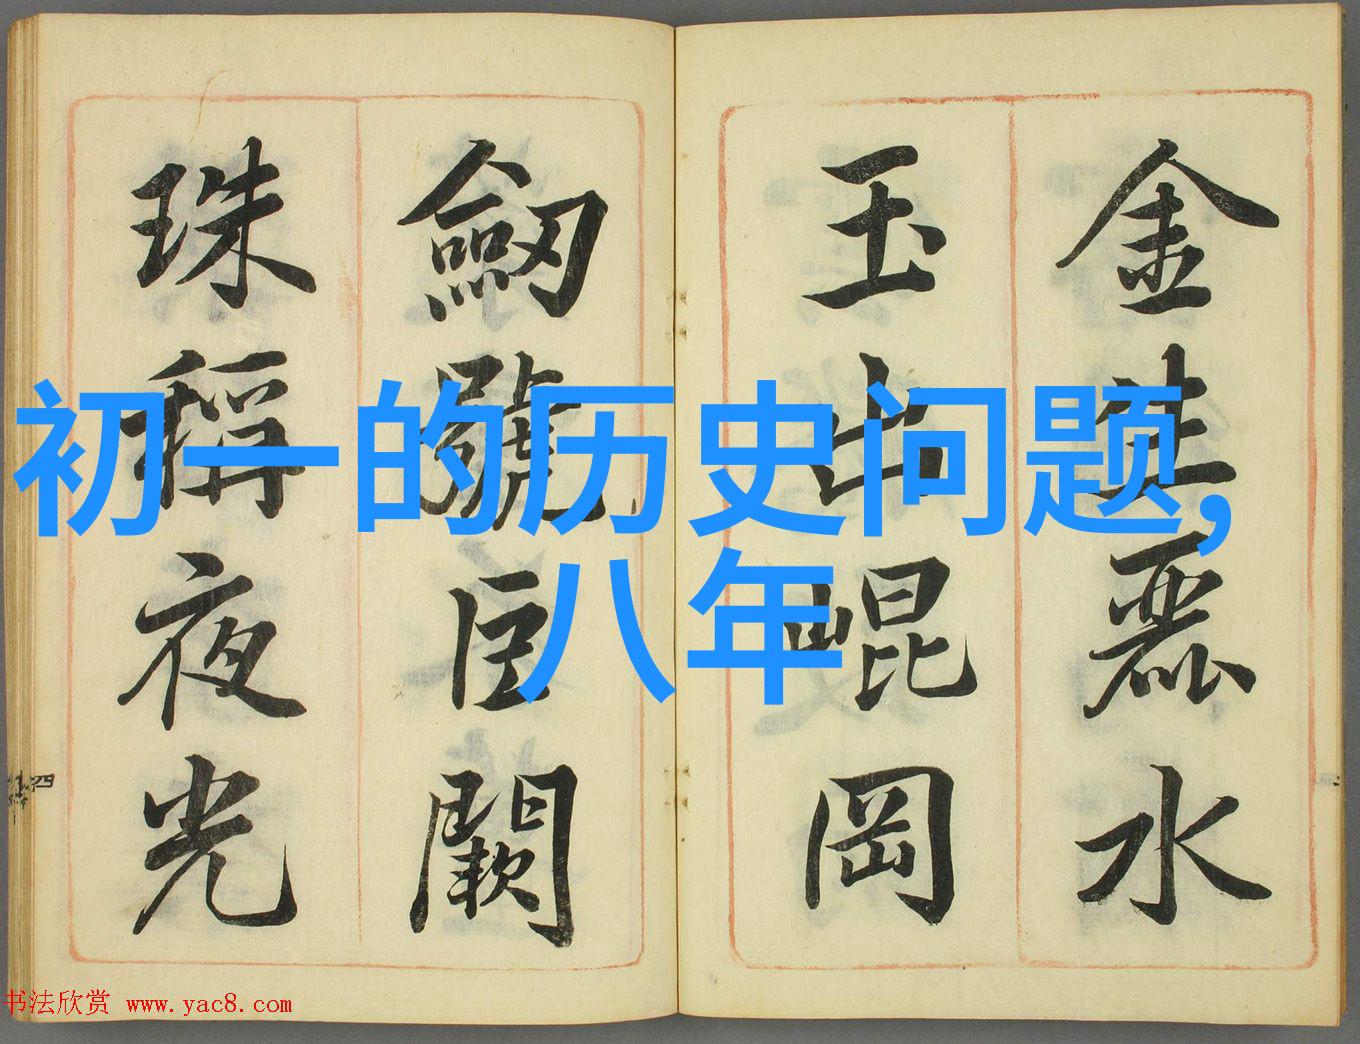 金生麗水
玉出崐岡
劒號巨闕
珠稱夜光
初一的历史问题,
八年
四
书法欣赏 www.yac8.com